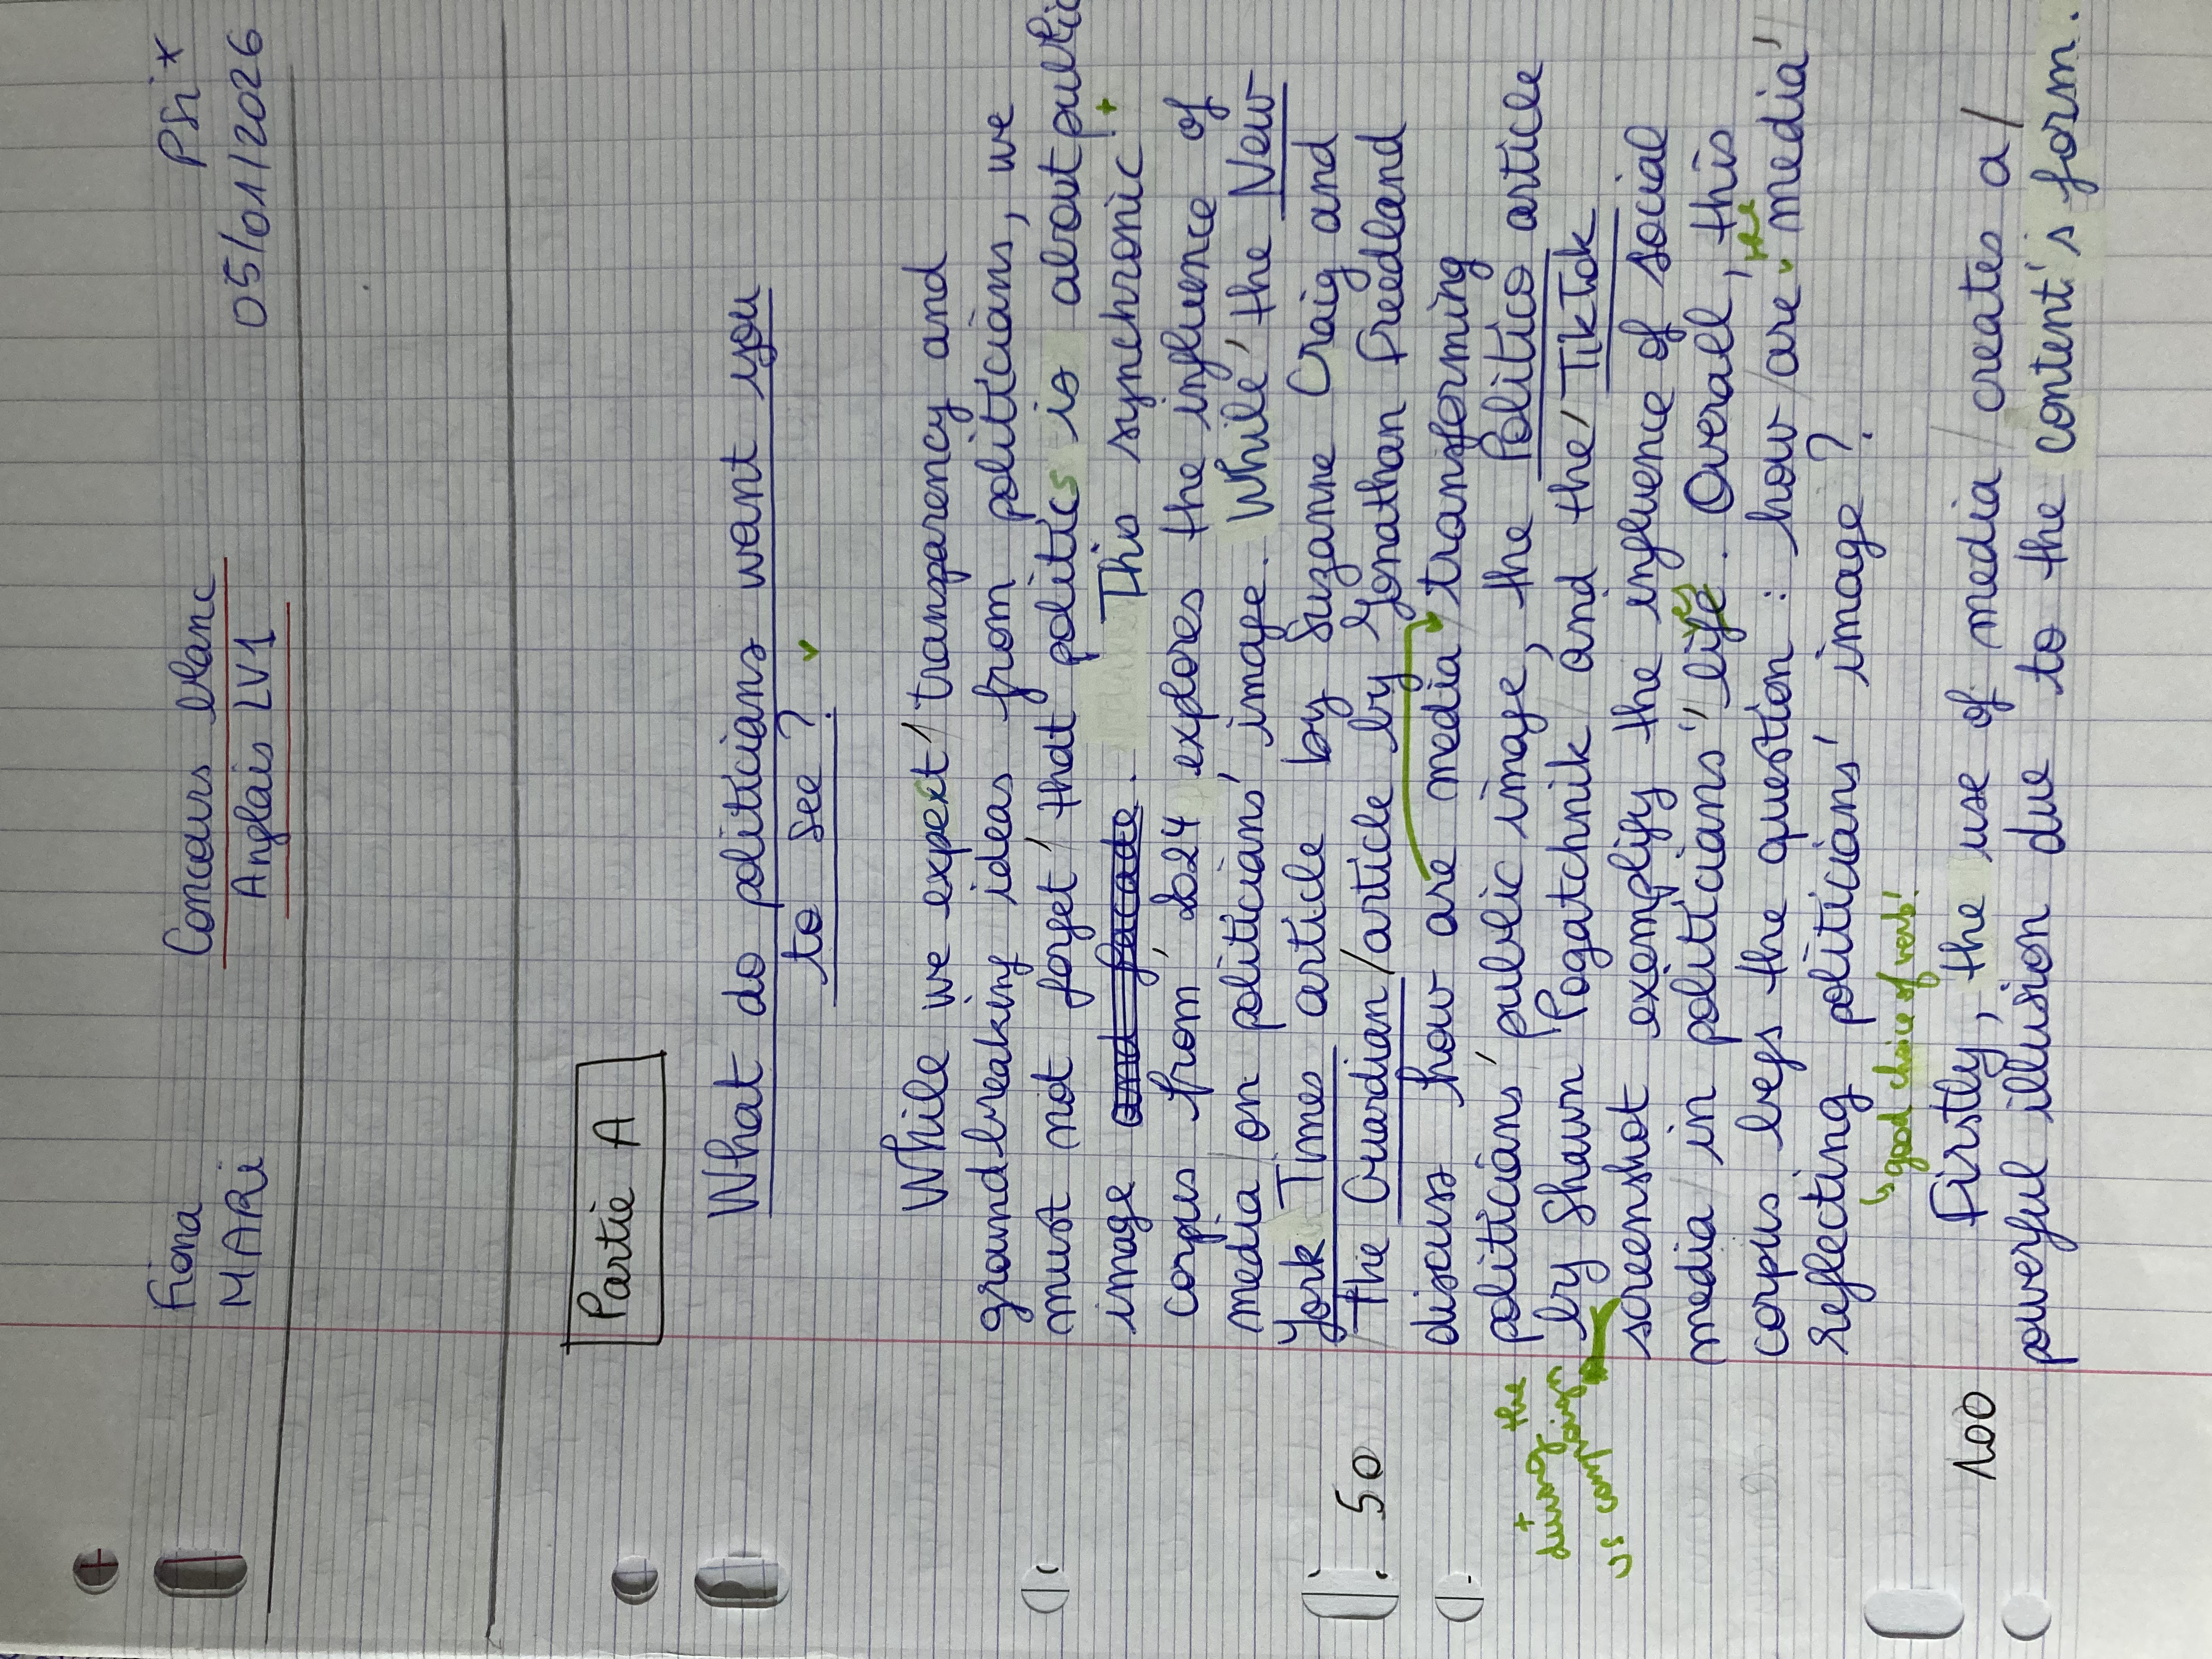 Fiona
MARi
Concours blanc
Anglais LV1
PSi*
05/01/2026
Partie A
What do politicians want you
to see ?
While we expect / transparency and
groundbreaking ideas from politicians, we
must not forget / that politics is about public
image and facade. This synchronic +
corpus from 2024 explores the influence of
media / on politicians' image. While / the New
York Times article by Suzanne Craig and
/ the Guardian / article by Jonathan Freedland
50
discuss how are media / transforming
politicians' public image, the Politico article
by Shawn Pogatchnik / and the / TikTok
+
during the
ongoing
US camp
screenshot exemplify the influence of social
media / in politicians' life. Overall, this
ves
corpus begs the question : how / are media /
the
reflecting politicians' image ?
↳ good choice of verb!
Firstly, the use of media / creates a /
100
powerful illusion due to the content's form.